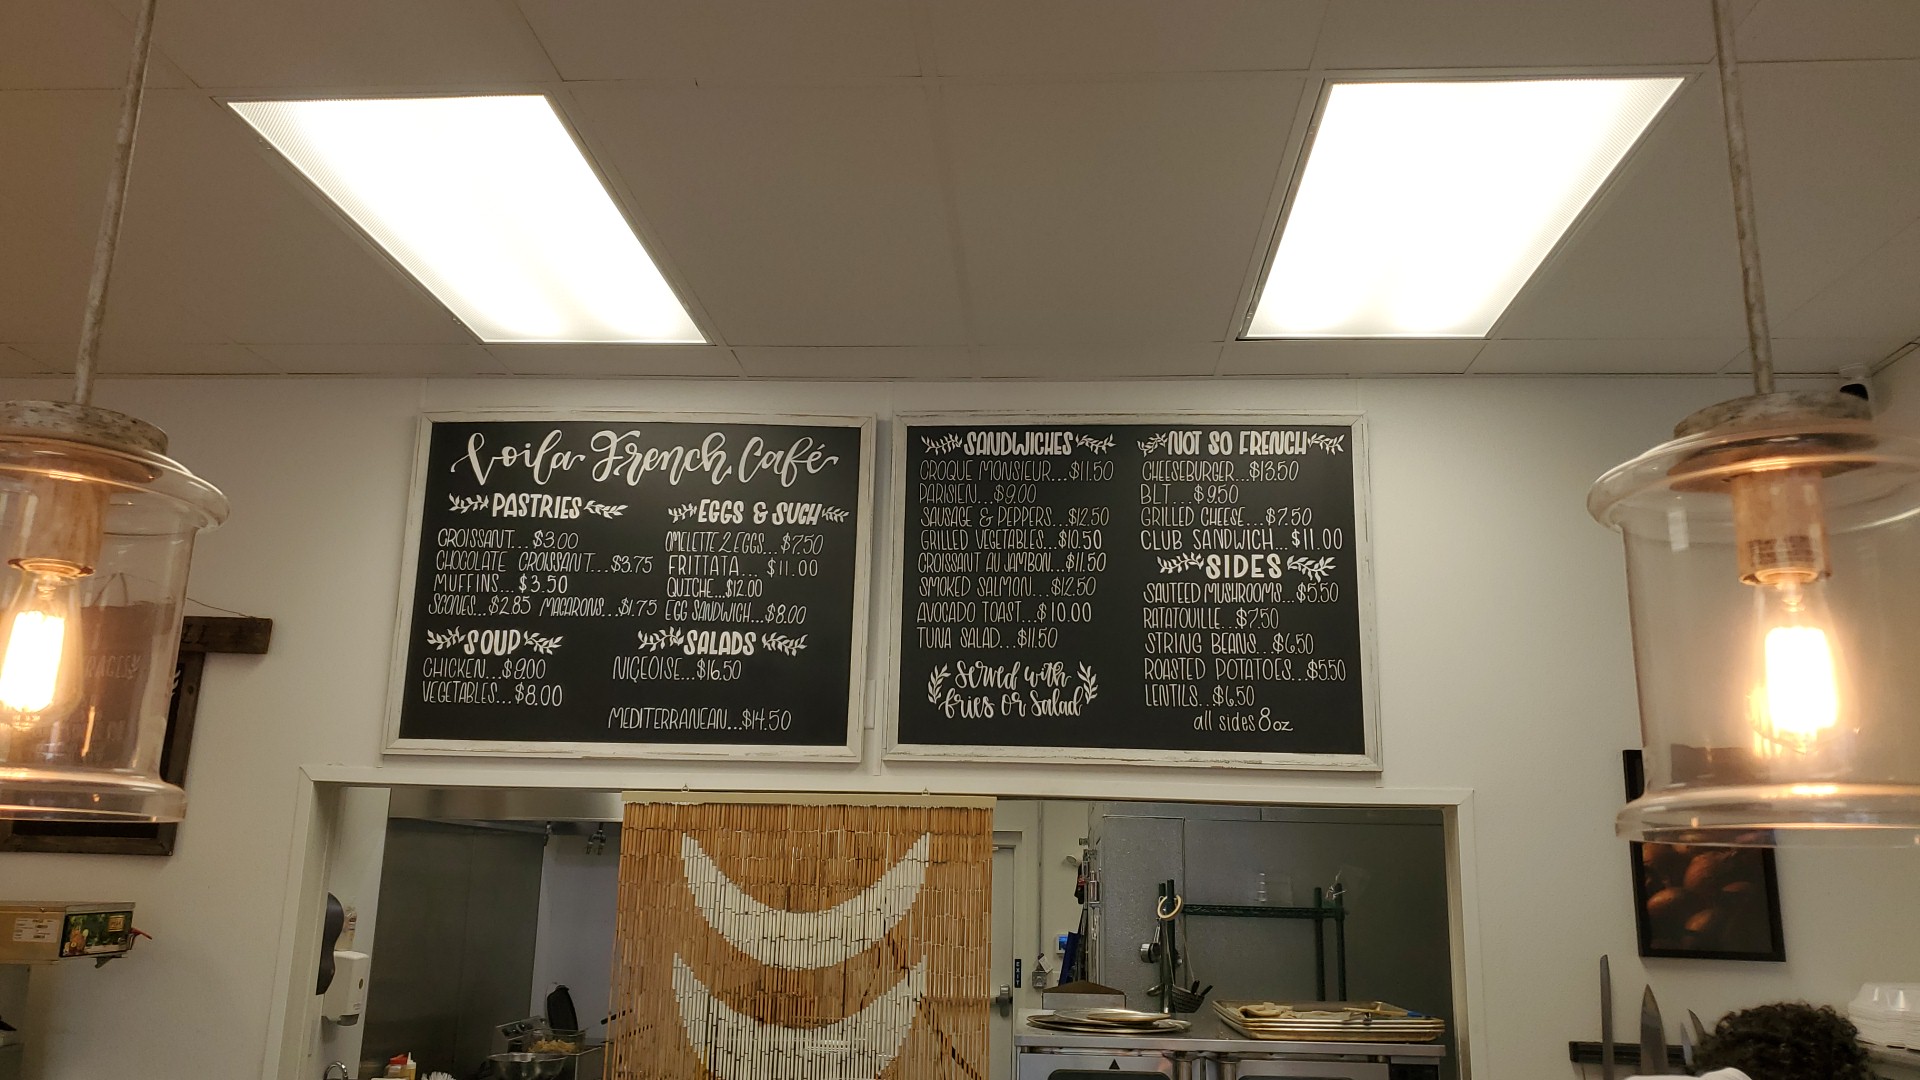 Voila French Café
PASTRIES
CROISSANT...$3.00
CHOCOLATE CROISSANT...$3.75
MUFFINS...$3.50
SCONES...$2.85 MACARONS...$1.75
EGGS & SUCH
OMELETTE 2 EGGS...$7.50
FRITTATA...$11.00
QUICHE...$12.00
EGG SANDWICH...$8.00
SOUP
CHICKEN...$9.00
VEGETABLES...$8.00
SALADS
NIÇEOISE...$16.50
MEDITERRANEAN...$14.50
SANDWICHES
CROQUE MONSIEUR...$11.50
PARISIEN...$9.00
SAUSAGE & PEPPERS...$12.50
GRILLED VEGETABLES...$10.50
CROISSANT AU JAMBON...$11.50
SMOKED SALMON...$12.50
AVOCADO TOAST...$10.00
TUNA SALAD...$11.50
Served with
fries or Salad
NOT SO FRENCH
CHEESEBURGER...$13.50
BLT...$9.50
GRILLED CHEESE...$7.50
CLUB SANDWICH...$11.00
SIDES
SAUTEED MUSHROOMS...$5.50
RATATOUILLE...$7.50
STRING BEANS...$6.50
ROASTED POTATOES...$5.50
LENTILS...$6.50
all sides 8oz